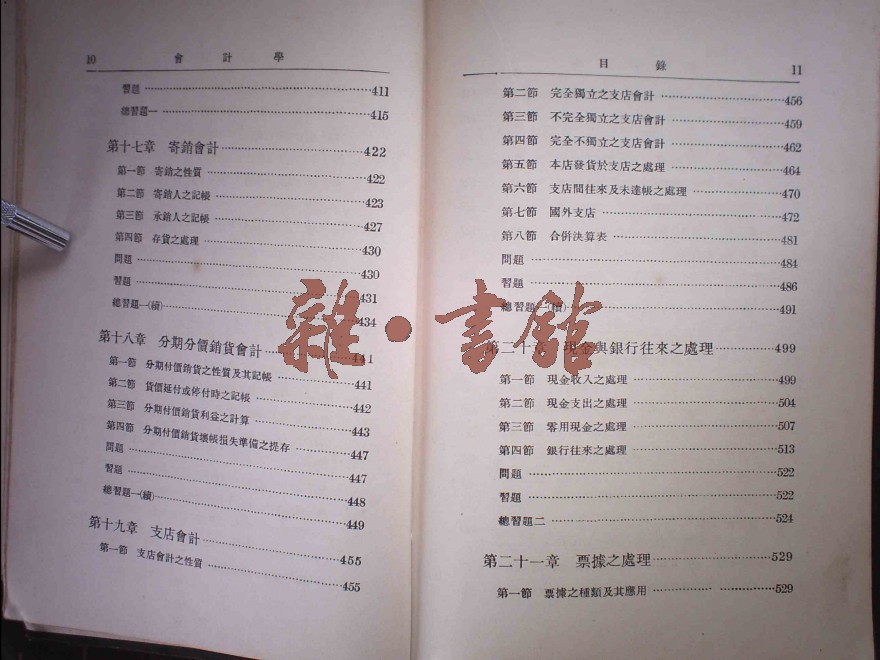 10 會計學
習題 411
總習題一 415
第十七章 寄銷會計 422
第一節 寄銷之性質 422
第二節 寄銷人之記帳 423
第三節 承銷人之記帳 427
第四節 存貨之處理 430
問題 430
習題 431
總習題一(續) 434
第十八章 分期分價銷貨會計 441
第一節 分期付價銷貨之性質及其記帳 441
第二節 貨價延付或停付時之記帳 442
第三節 分期付價銷貨利益之計算 443
第四節 分期付價銷貨壞帳損失準備之提存 447
問題 447
習題 448
總習題一(續) 449
第十九章 支店會計 455
第一節 支店會計之性質 455
目錄 11
第二節 完全獨立之支店會計 456
第三節 不完全獨立之支店會計 459
第四節 完全不獨立之支店會計 462
第五節 本店發貨於支店之處理 464
第六節 支店間往來及未達帳之處理 470
第七節 國外支店 472
第八節 合併決算表 481
問題 484
習題 486
總習題一(續) 491
第二十章 現金與銀行往來之處理 499
第一節 現金收入之處理 499
第二節 現金支出之處理 504
第三節 零用現金之處理 507
第四節 銀行往來之處理 513
問題 522
習題 522
總習題二 524
第二十一章 票據之處理 529
第一節 票據之種類及其應用 529
雜·書館